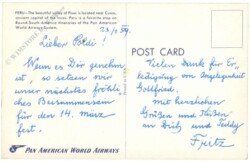 PERU—The beautiful ruins of Pisac is located near Cuzco,
ancient capital of the Incas. Peru is a favorite stop on
Round-South America itineraries of the Pan American
World Airways System.
Lieber Poldi!
Wenn es Dir genehm
ist, so setzen wir
unser nächstes fröhli-
ches Beisammensein
für den 14. März
fest.
POST CARD
Vielen Dank für Er-
ledigung von Angelegenheit
Gottfried.
Mit herzlichen
Grüßen und Küssen
an Dich und Teddy
Fritz
PAN AMERICAN WORLD AIRWAYS